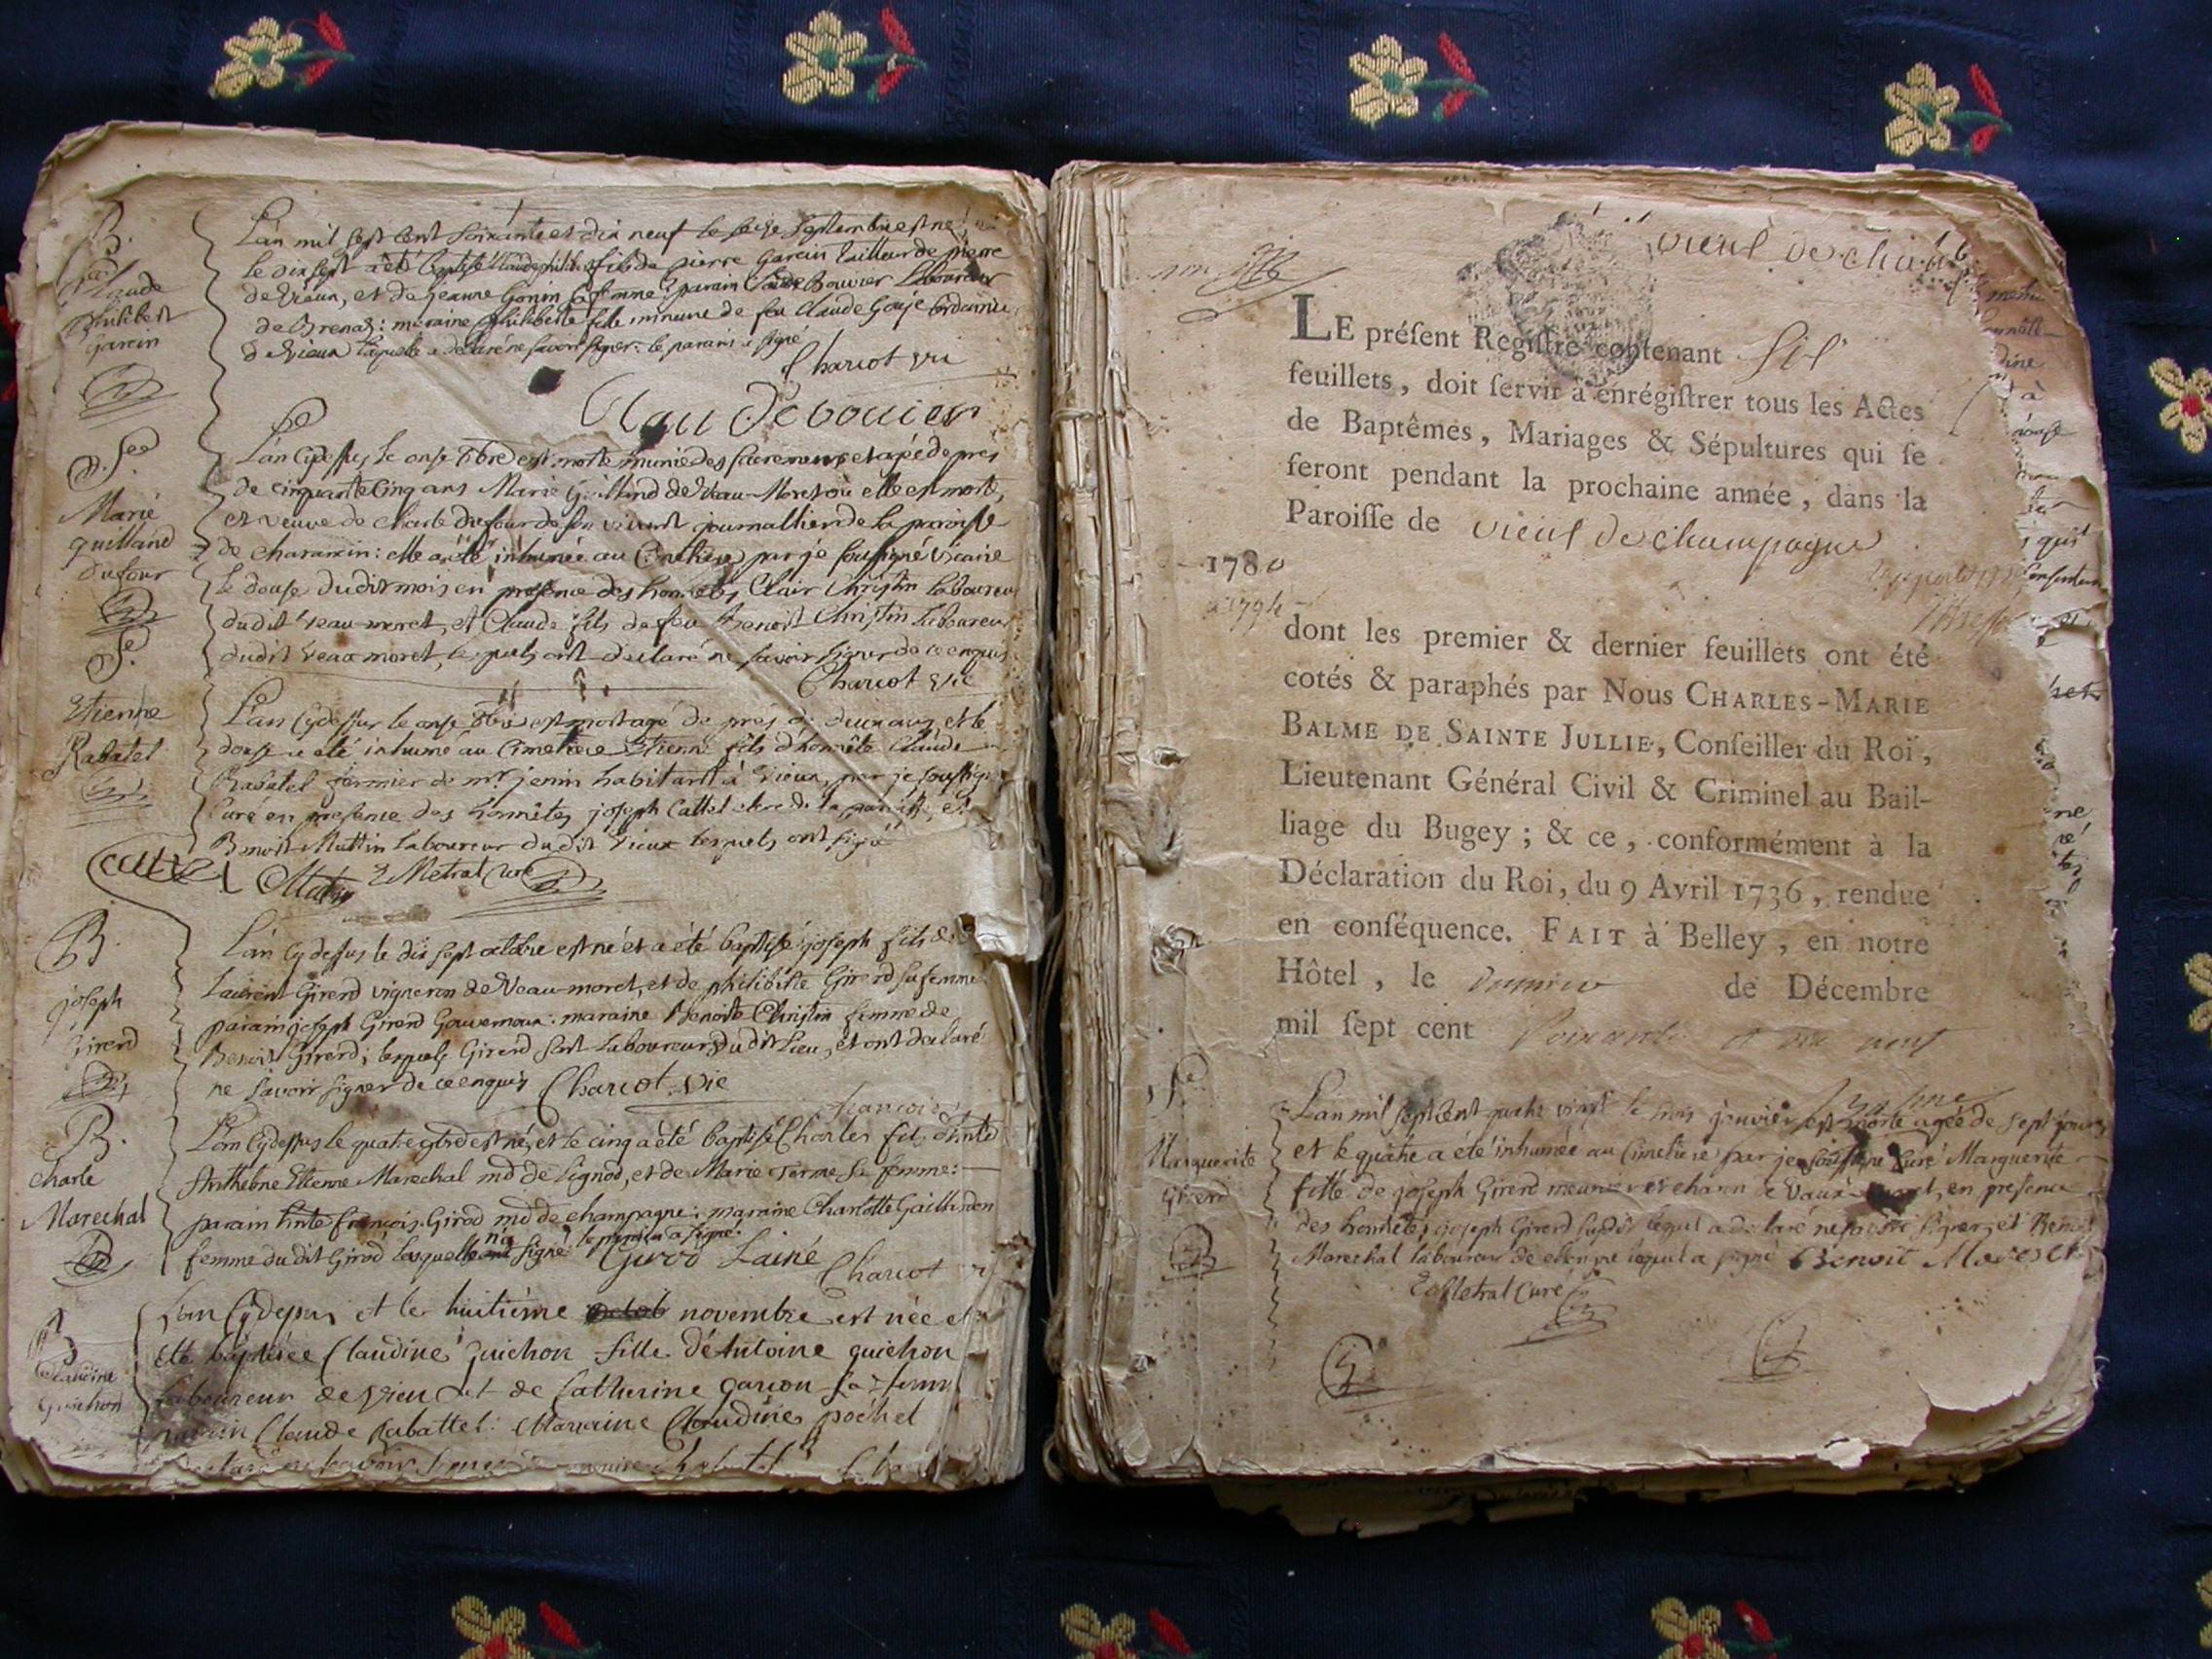 B.
Claude
philibert
garein
L'an mil sept cent soixante et dix neuf le seise Septembre est né
le dix sept a été baptisé Claude philibert fils de pierre Garein tailleur de pierre
de Vieux, et de jeanne Gonin sa femme: parain Claude Bouvier Laboureur
de Brenaz: maraine philiberte fille mineure de feu Claude Gouje
de Vieux laquelle a declaré ne savoir signer: le parain a signé
Charcot vic
Claude bouier
Se
Marie
guilland
dufour
L'an cy dessus le onse 8bre est morte munie des sacremens et agée de près
de cinquante cinq ans Marie Guilland de Veau-Moret où elle est morte,
et veuve de Charle dufour de son vivant journallier de la paroisse
de charancin: elle a été inhumée au Cimetière par je soussigné vicaire
le douse du dit mois en presence des honnetes Clair Christin laboureur
du dit veau-moret, et Claude fils de feu Benoit Christin Laboureur
du dit veau moret, lesquels ont declaré ne savoir signer de ce enquis
Charcot vic
Se
Etienne
Rabatel
L'an cy dessus le onse 8bre est mort agé de près de deux ans, et le
douse a été inhumé au Cimetiere Etienne fils d'honnête Claude
Rabatel fermier de mr jenin habitant à Vieux, par je soussigné
Curé en presence des honnêtes joseph Cattel clerc de la paroisse, et
Benoit Muttin laboureur du dit Vieux lesquels ont signé
cattel Mutin Metral Curé
B.
joseph
Girerd
L'an cy dessus le dix sept octobre est né et a été baptisé joseph fils de
Laurent Girerd vigneron de Veau-moret, et de philiberte Girerd sa femme
parain joseph Girerd Gouverneur: maraine Benoite Christin femme de
Benoit Girerd; lesquels Girerd sont laboureurs du dit Lieu, et ont declaré
ne savoir signer de ce enquis Charcot. vic
B.
charle
Marechal
françois
L'an cy dessus le quatre 9bre est né, et le cinq a été baptisé Charles fils
Anthelme Etienne Marechal md de Lignod, et de Marie Terme sa femme:
parain françois Girod md de champagne: maraine Charlotte Gaillardon
femme du dit Girod laquelle n'a signé: le parain a signé.
Girod Lainé
Charcot
B
Claudine
Guichon
L'an cy depus et le huitième novembre est née et
été baptisée Claudine guichon fille d'Antoine guichon
laboureur de vieu et de Catherine garcon sa femme
parain Claude Rabattel: Marraine Claudine pochet
vieul de cham
LE préſent Regiſtre contenant six
feuillets, doit ſervir à enrégiſtrer tous les Actes
de Baptêmes, Mariages & Sépultures qui ſe
feront pendant la prochaine année, dans la
Paroiſſe de vieul de champagne
1780
à 1794
dont les premier & dernier feuillets ont été
cotés & paraphés par Nous CHARLES-MARIE
BALME DE SAINTE JULLIE, Conſeiller du Roi,
Lieutenant Général Civil & Criminel au Bail-
liage du Bugey; & ce, conformément à la
Déclaration du Roi, du 9 Avril 1736, rendue
en conſéquence. FAIT à Belley, en notre
Hôtel, le premier de Décembre
mil ſept cent soixante et dix neuf
Balme
Se
Marguerite
Girerd
L'an mil sept cent quatre vingt le trois janvier est morte agée de sept jours
et le quatre a été inhumée au Cimetiere par je soussigné Curé Marguerite
fille de joseph Girerd meunier et charon de Vaux-moret, en presence
des honnêtes joseph Girerd susdit lequel a declaré ne savoir signer, et Benoit
Marechal laboureur de lequel a signé Benoit Marechal
Metral Curé